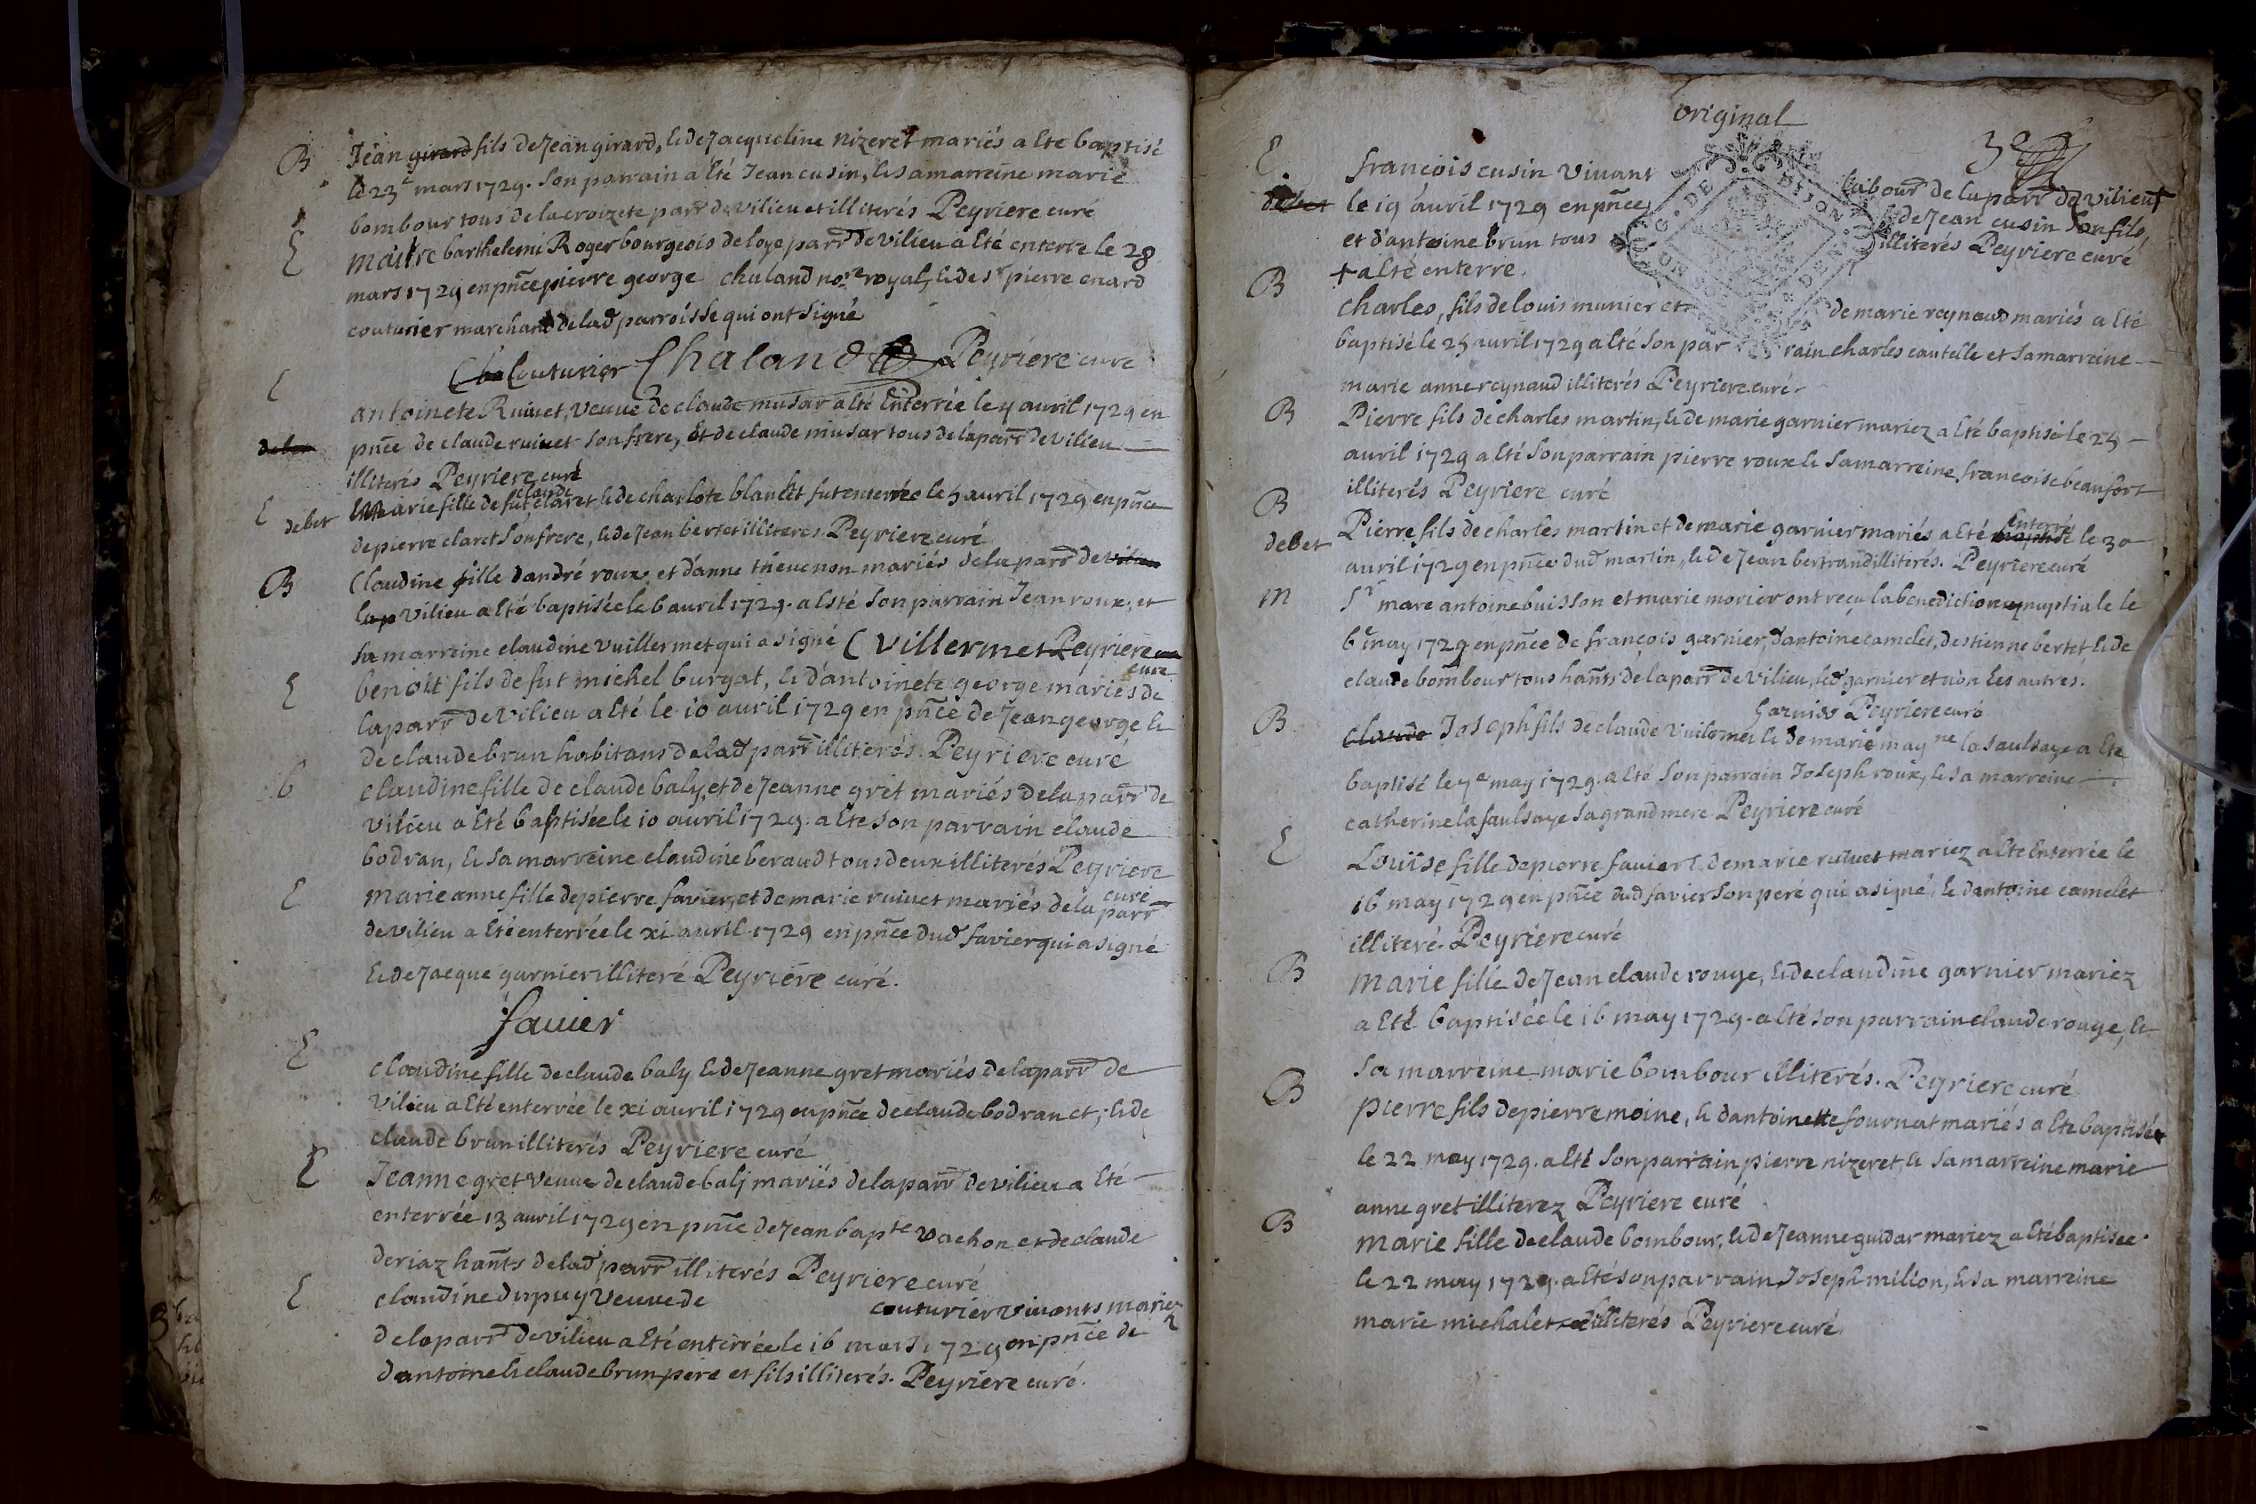 B Jean girard fils de Jean girard, & de Jacqueline nizeret mariés a Eté baptisé
le 23e mars 1729. son parrain a Eté Jean cusin, & sa marreine marie
bombour tous de la croizete parr de vilieu et illiterés Peyriere curé
E maitre barthelemi Roger bourgeois de loye parr de vilieu a Eté enterré le 28
mars 1729 en pnce pierre george chaland nore royal, & de sr pierre enard
couturier marchand de lad parroisse qui ont signé
Couturier Chaland Peyriere curé
E antoinete Ruivet, veuve de claude musar a Eté Enterrée le 4 avril 1729 en
debet pnce de claude ruivet son frere, Et de claude musar tous de la parr de vilieu
illiterés Peyriere curé
claude
E debet Marie fille de fut claret & de charlote blanket fut enterrée le 5 avril 1729 en pnce
de pierre claret son frere, & de Jean bertet illiteres. Peyriere curé
B Claudine fille d'andré roux et d'anne thevenon mariés de la parr de vilieu
lap vilieu a Eté baptisée le 6 avril 1729. a Esté son parrain Jean roux, et
sa marreine claudine vuillermet qui a signé C villermet Peyriere
curé
E benoit fils de fut michel burgat, & d'antoinete george mariés de
la parr de vilieu a Eté le 10 avril 1729 en pnce de Jean george &
de claude brun habitans de lad parr illiterés. Peyriere curé
b claudine fille de claude baly, et de Jeanne gret mariés de la parr de
vilieu a Eté baptisée le 10 avril 1729. a Eté son parrain claude
bodran, & sa marreine claudine beraud tous deux illiterés Peyriere
curé
E marie anne fille de pierre favier, et de marie ruivet mariés de la parr
de vilieu a Eté enterrée le xi avril 1729 en pnce dud favier qui a signé
& de Jacque garnier illiteré Peyriere curé.
favier
E claudine fille de claude baly & de Jeanne gret mariés de la parr de
vilieu a Eté enterrée le xi avril 1729 en pnce de claude bodran et, & de
claude brun illiterés Peyriere curé
E Jeanne gret veuve de claude balj mariés de la parr de vilieu a Eté
enterrée 13 avril 1729 en pnce de Jean bapte vachon et de claude
deriaz hants de lad parr illiterés Peyriere curé
E claudine dupuy veuve de couturier vivants mariez
de la parr de vilieu a Eté enterrée le 16 mars 1729 en pnce de
d'antoine & claude brun pere et fils illiterés. Peyriere curé.
original
3e
E francois cusin vivant labour de la parr de vilieu +
debet le 19 avril 1729 en pnce & de Jean cusin son fils
et d'antoine brun tous illiterés Peyriere curé
+ a Eté enterre.
B charles, fils de louis munier et de marie reynaud mariés a Eté
baptisé le 25 avril 1729 a Eté son parrain charles cautelle et sa marreine
marie anne reynaud illiterés Peyriere curé
B Pierre fils de charles martin, & de marie garnier mariez a Eté baptisé le 25
avril 1729 a Eté son parrain pierre roux & sa marreine francoise beaufort
illiterés Peyriere curé
Enterré
B debet Pierre fils de charles martin et de marie garnier mariés a Eté baptisé le 30
avril 1729 en pnce dud martin, & de Jean bertrand illiterés. Peyriere curé
m Sr marc antoine buisson et marie morier ont reçu la benediction nuptiale le
6e may 1729 en pnce de françois garnier, d'antoine camelet, d'estienne bertet & de
claude bombour tous hants de la parr de vilieu, led garnier et non les autres.
garnier Peyriere curé
B claude Joseph fils de claude vuilomet & de marie magne la saulsaye a Eté
baptisé le 7e may 1729. a Eté son parrain Joseph roux, & sa marreine
catherine la saulsaye sa grand mere Peyriere curé
E Louïse fille de pierre favier & de marie ruivet mariez a Eté Enterrée le
16 may 1729 en pnce dud favier son pere qui a signé, & d'antoine camelet
illiteré. Peyriere curé
B marie fille de Jean claude rouge, & de claudine garnier mariez
a Eté baptisée le 16 may 1729. a Eté son parrain claude rouge, &
sa marreine marie bombour illiterés. Peyriere curé
B pierre fils de pierre moine, & d'antoinette fournat mariés a Eté baptisé
le 22 may 1729. a Eté son parrain pierre nizeret, & sa marreine marie
anne gret illiterez Peyriere curé
B marie fille de claude bombour, & de Jeanne guidar mariez a Eté baptisee
le 22 may 1729. a Eté son parrain Joseph milion, & sa marreine
marie michalet illiterés Peyriere curé